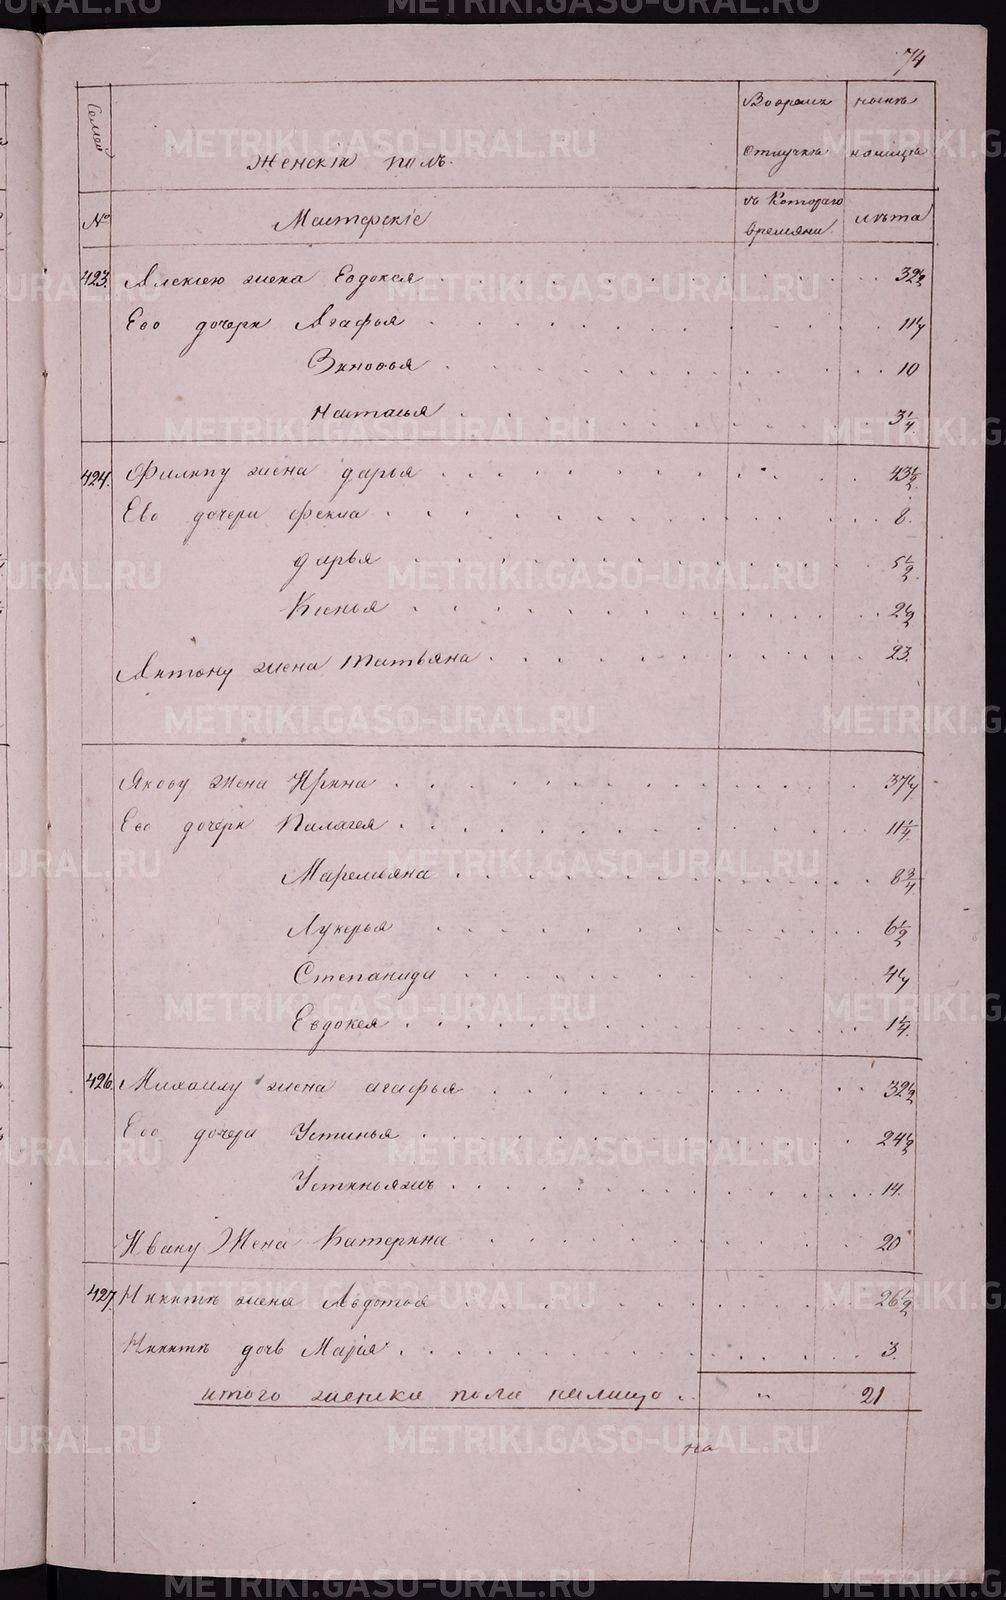 METRIKI.GASO-URAL.RU
74
Семей
Женскiй полъ.
Во времян
ной
отлучкѣ
нынѣ
налицо
№
Мастерскiе
съ Котораго
времяни.
лѣта
423. Алексею жена Евдокея 32½
Ево дочери Агафья 11¼
Зиновья 10
Настасья 3¼
424. Филипу жена дарья 43½
Ево дочери Фекла 8.
дарья 5½
Ксенья 2½
Антону жена Татьяна 23.
Якову жена Ирина 37¼
Ево дочери Палагея 11¼
Маремьяна 8¾
Лукерья 6½
Степанида 4¼
Евдокея 1¼
426. Михаилу жена агафья 32½
Ево дочери Устинья 24½
Устиньяжъ 14.
Ивану Жена Катерина 20
427. Никитѣ жена Авдотья 26½
Никитѣ дочь Марiя 3.
итого женска пола налицо „ 21
на